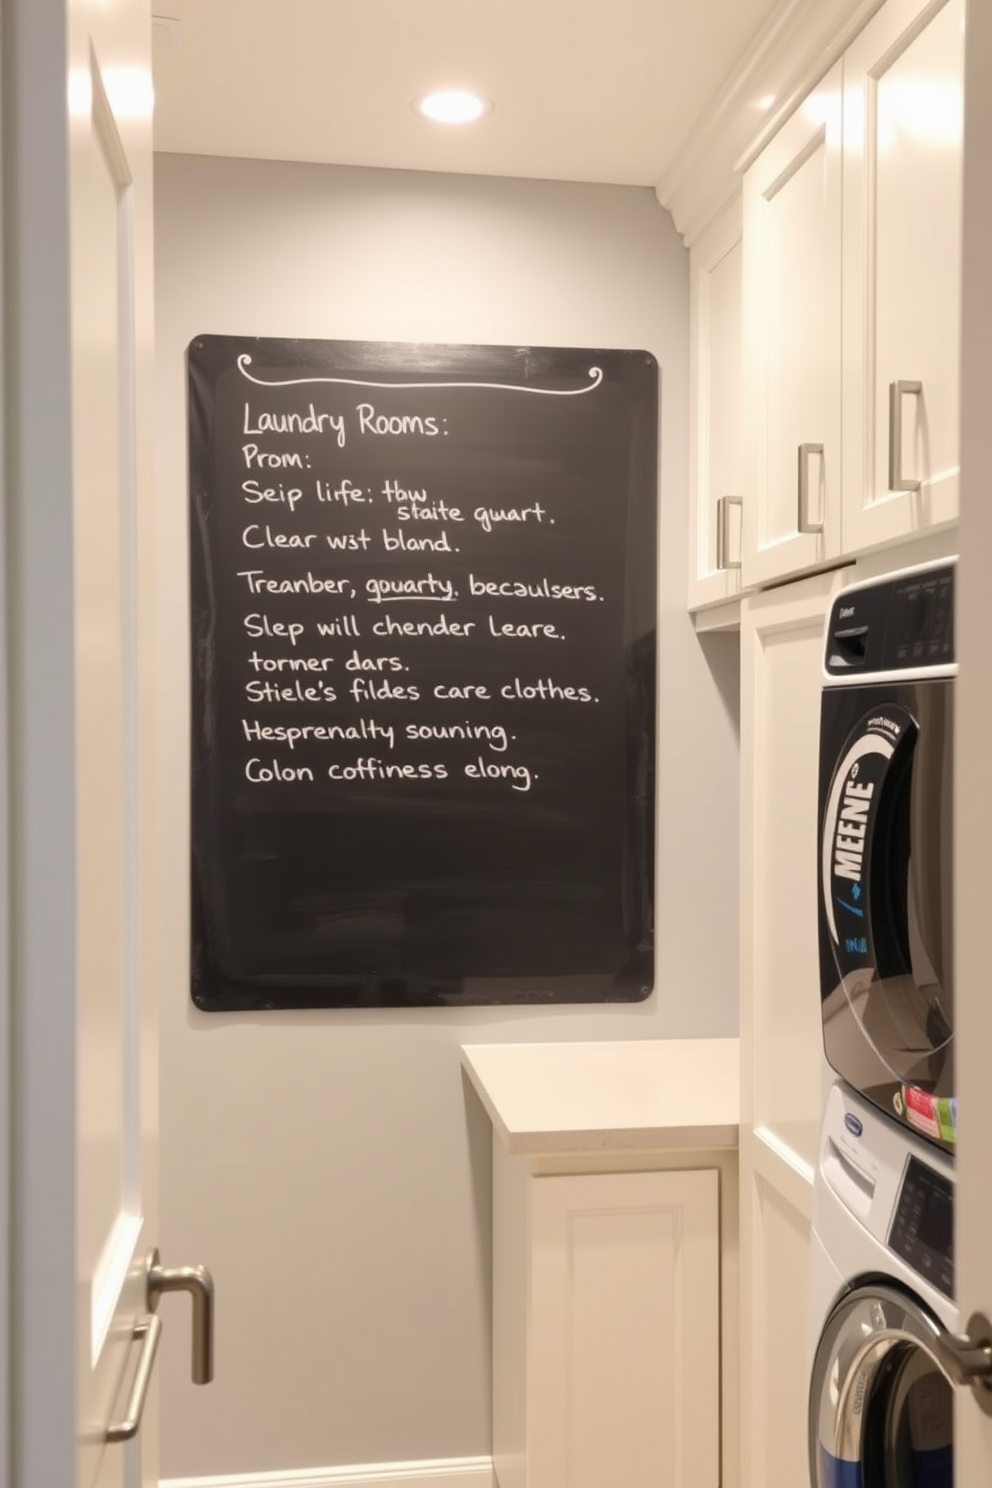 Laundry Rooms:
Prom:
Seip lirfe: tbw
staite guart.
Clear wst bland.
Treanber, gouarty. becaulsers.
Slep will chender Leare.
tormer dars.
Stiele's fildes care clothes.
Hesprenalty souning.
Colon coffiness elong.
MEENE